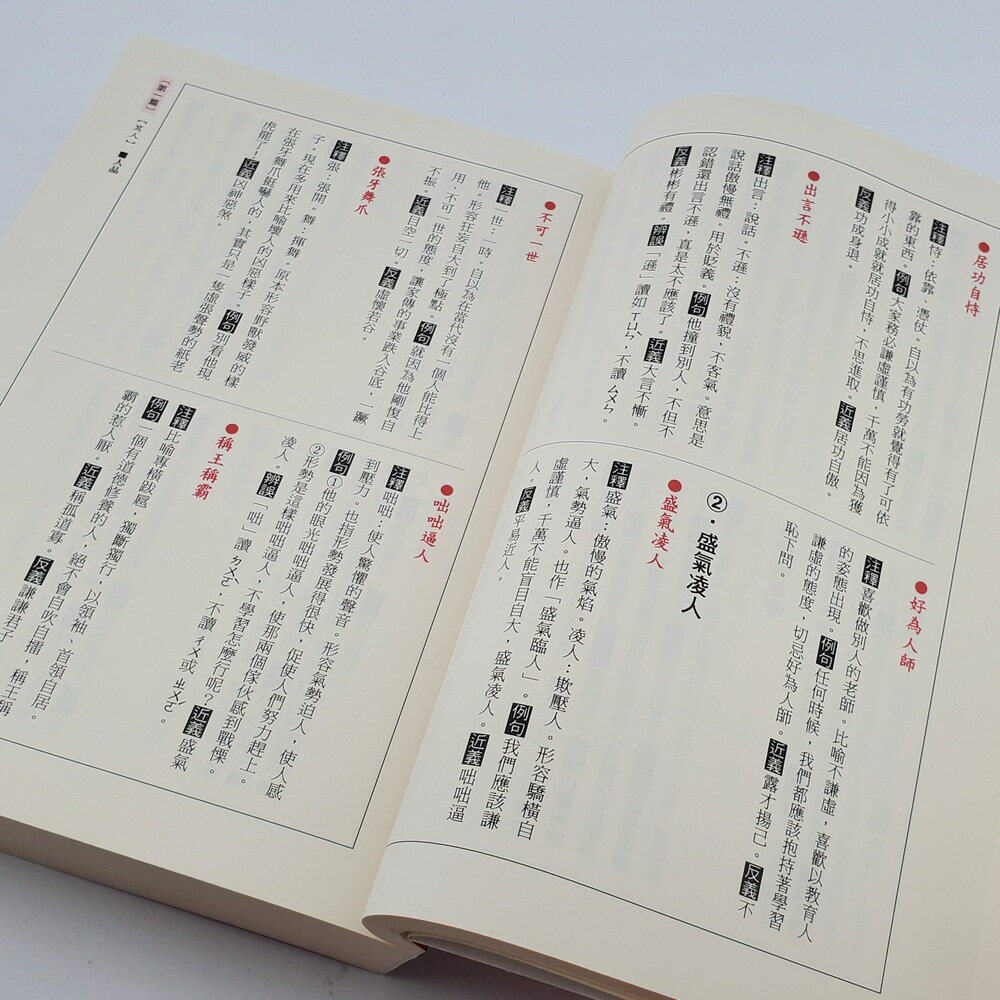 居功自恃
注釋恃：依靠，憑仗。自以為有功勞就覺得有了可依
靠的東西。例句大家務必謙虛謹慎，千萬不能因為獲
得小小成就就居功自恃，不思進取。近義居功自傲。
反義功成身退。
出言不遜
注釋出言：說話。不遜：沒有禮貌，不客氣。意思是
說話傲慢無禮。用於貶義。例句他撞到別人，不但不
認錯還出言不遜，真是太不應該了。近義大言不慚。
反義彬彬有禮。辨誤「遜」讀如ㄒㄩㄣˋ，不讀ㄙㄨㄣ。
好為人師
注釋喜歡做別人的老師。比喻不謙虛，喜歡以教育人
的姿態出現。例句任何時候，我們都應該抱持著學習
謙虛的態度，切忌好為人師。近義露才揚己。反義不
恥下問。
②．盛氣凌人
盛氣凌人
注釋盛氣：傲慢的氣焰。凌人：欺壓人。形容驕橫自
大，氣勢逼人。也作「盛氣臨人」。例句我們應該謙
虛謹慎，千萬不能盲目自大，盛氣凌人。近義咄咄逼
人。反義平易近人。
【第一篇】【寫人】■人品
不可一世
注釋一世：一時。自以為在當代沒有一個人能比得上
他。形容狂妄自大到了極點。例句就因為他剛愎自
用、不可一世的態度，讓家傳的事業跌入谷底，一蹶
不振。近義目空一切。反義虛懷若谷。
張牙舞爪
注釋張：張開。舞：揮舞。原本形容野獸發威的樣
子。現在多用來比喻壞人的凶惡樣子。例句別看他現
在張牙舞爪挺嚇人的，其實只是一隻虛張聲勢的紙老
虎罷了！近義凶神惡煞。
咄咄逼人
注釋咄咄：使人驚懼的聲音。形容氣勢迫人，使人感
到壓力。也指形勢發展得很快，促使人們努力趕上。
例句①他的眼光咄咄逼人，使那兩個傢伙感到戰慄。
②形勢是這樣咄咄逼人，不學習怎麼行呢？近義盛氣
凌人。辨誤「咄」讀ㄉㄨㄛˋ，不讀ㄔㄨˋ或ㄓㄨㄛˊ。
稱王稱霸
注釋比喻專橫跋扈，獨斷獨行，以領袖、首領自居。
例句一個有道德修養的人，絕不會自吹自擂，稱王稱
霸的惹人厭。近義稱孤道寡。反義謙謙君子。